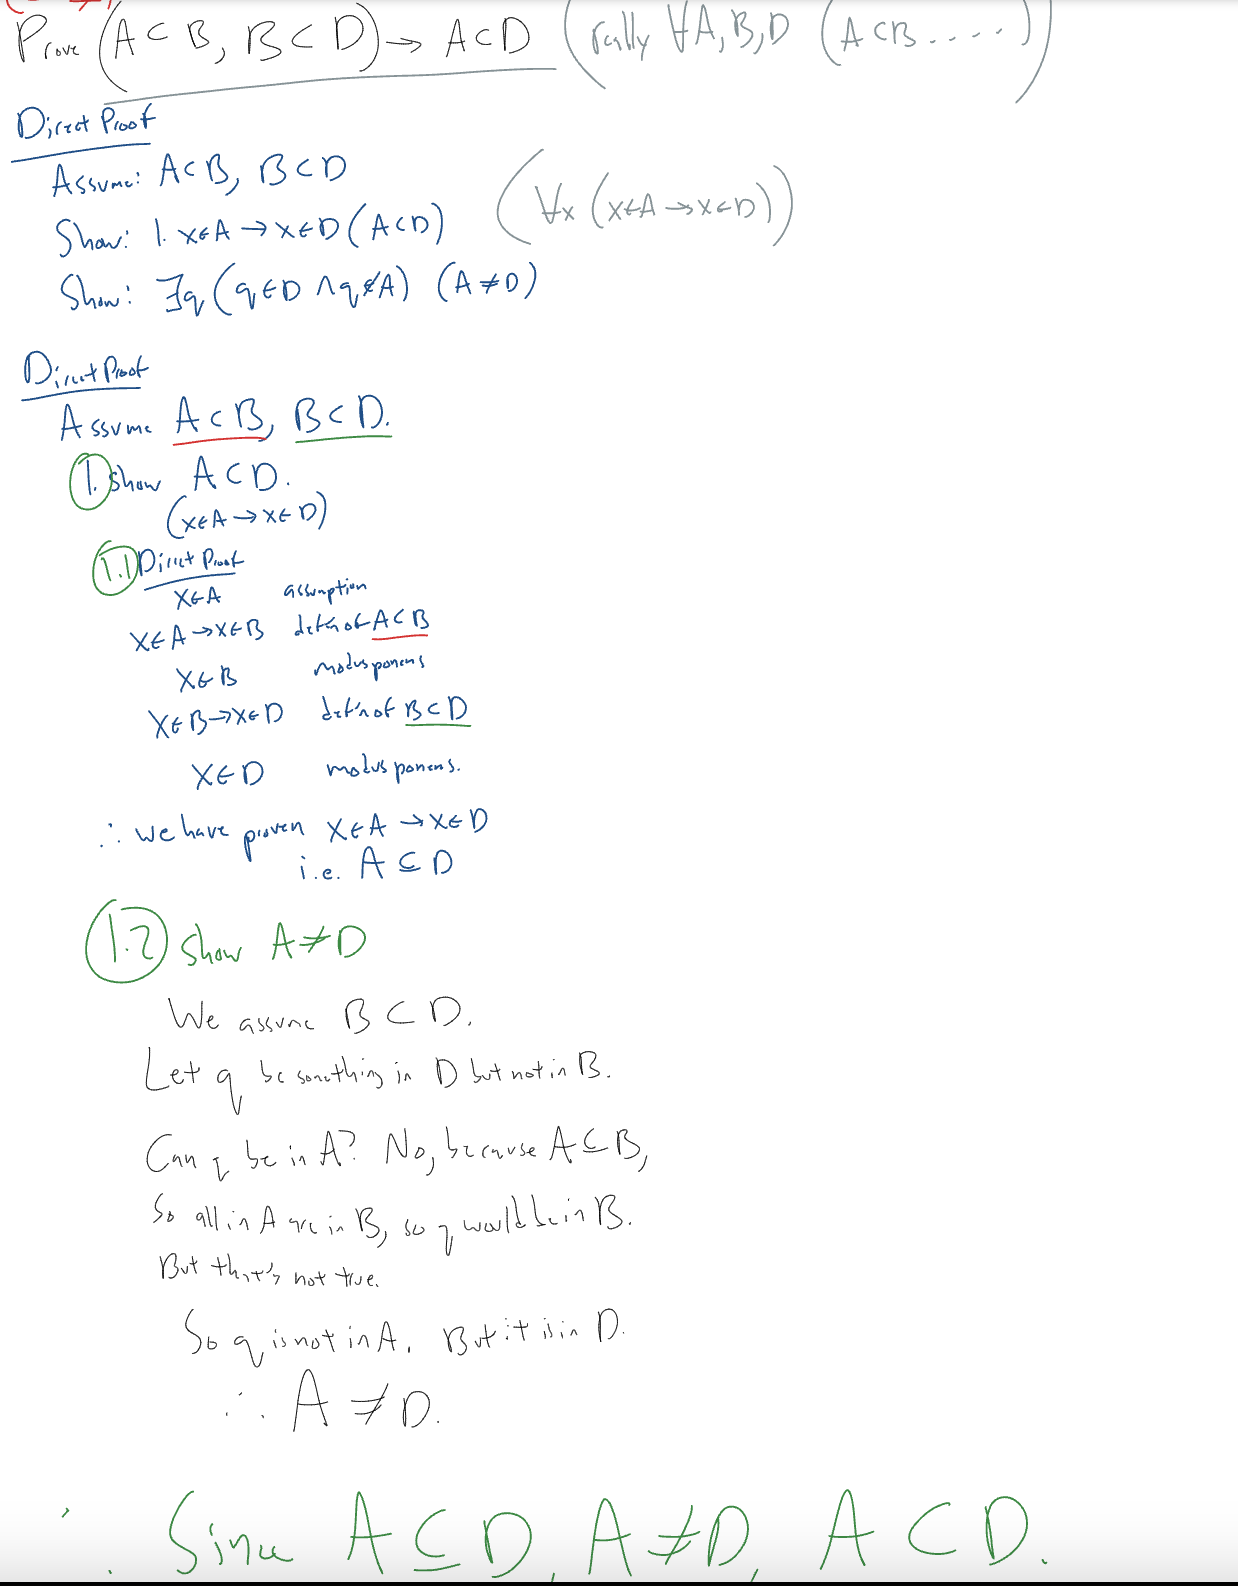 Prove (A ⊂ B, B ⊂ D) → A ⊂ D (really ∀A,B,D (A ⊂ B.....))
Direct Proof
Assume: A ⊂ B, B ⊂ D
Show: 1. x∈A → x∈D (A ⊂ D) (∀x (x∈A → x∈D))
Show: ∃q (q∈D ∧ q∉A) (A ≠ D)
Direct Proof
Assume A ⊂ B, B ⊂ D.
1. show A ⊂ D.
(x∈A → x∈D)
1.1 Direct Proof
x∈A assumption
x∈A → x∈B def'n of A ⊂ B
x∈B modus ponens
x∈B → x∈D def'n of B ⊂ D
x∈D modus ponens.
∴ we have proven x∈A → x∈D
i.e. A ⊆ D
1.2 show A ≠ D
We assume B ⊂ D.
Let q be something in D but not in B.
Can q be in A? No, because A ⊆ B,
So all in A are in B, so q would be in B.
But that's not true.
So q is not in A. But it is in D.
∴ A ≠ D.
∴ Since A ⊆ D, A ≠ D, A ⊂ D.